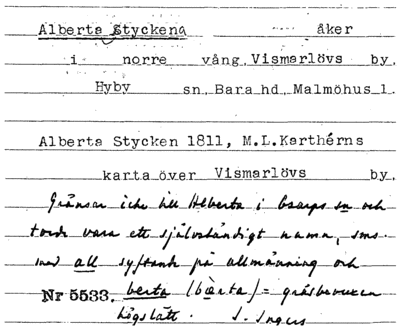 Alberta Styckena åker
i norre vång Vismarlövs by.
Hyby sn Bara hd Malmöhus l.
Alberta Stycken 1811, M.L.Karthérns
karta över Vismarlövs by.
Gränsar icke till Alberta i Esarps sn och
torde vara ett självständigt namn, sms.
med all syftande på allmänning och
Nr 5533. berta (bærta) = gräsbevuxen
högslätt. I. Ingers